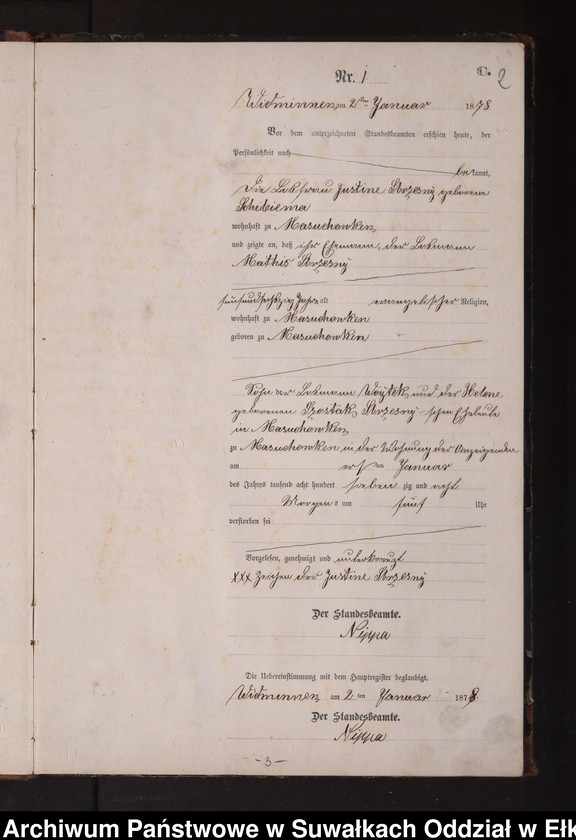 Nr. 1
C. 2
Widminnen, am 2ten Januar 1878
Vor dem unterzeichneten Standesbeamten erschien heute, der
Persönlichkeit nach
bekannt,
die Losfrau Justine Strzesny geborene
wohnhaft zu Masuchowken
und zeigte an, daß ihr Ehemann, der Losmann
Mathis Strzesny
fünfundsechszig Jahre alt evangelischer Religion,
wohnhaft zu Masuchowken
geboren zu Masuchowken
Sohn der Losmann Woytek und der Helene
geborenen Szostak Strzesny-schen Eheleute
in Masuchowken
zu Masuchowken in der Wohnung der Anzeigenden
am ersten Januar
des Jahres tausend acht hundert sieben zig und acht
Morgens um fünf Uhr
verstorben sei
Vorgelesen, genehmigt und unterkreuzt
XXX Zeichen der Justine Strzesny
Der Standesbeamte.
Nippa
Die Uebereinstimmung mit dem Hauptregister beglaubigt.
Widminnen, am 2 ten Januar 1878.
Der Standesbeamte.
Nippa
-3-
Archiwum Państwowe w Suwałkach Oddział w Ełk